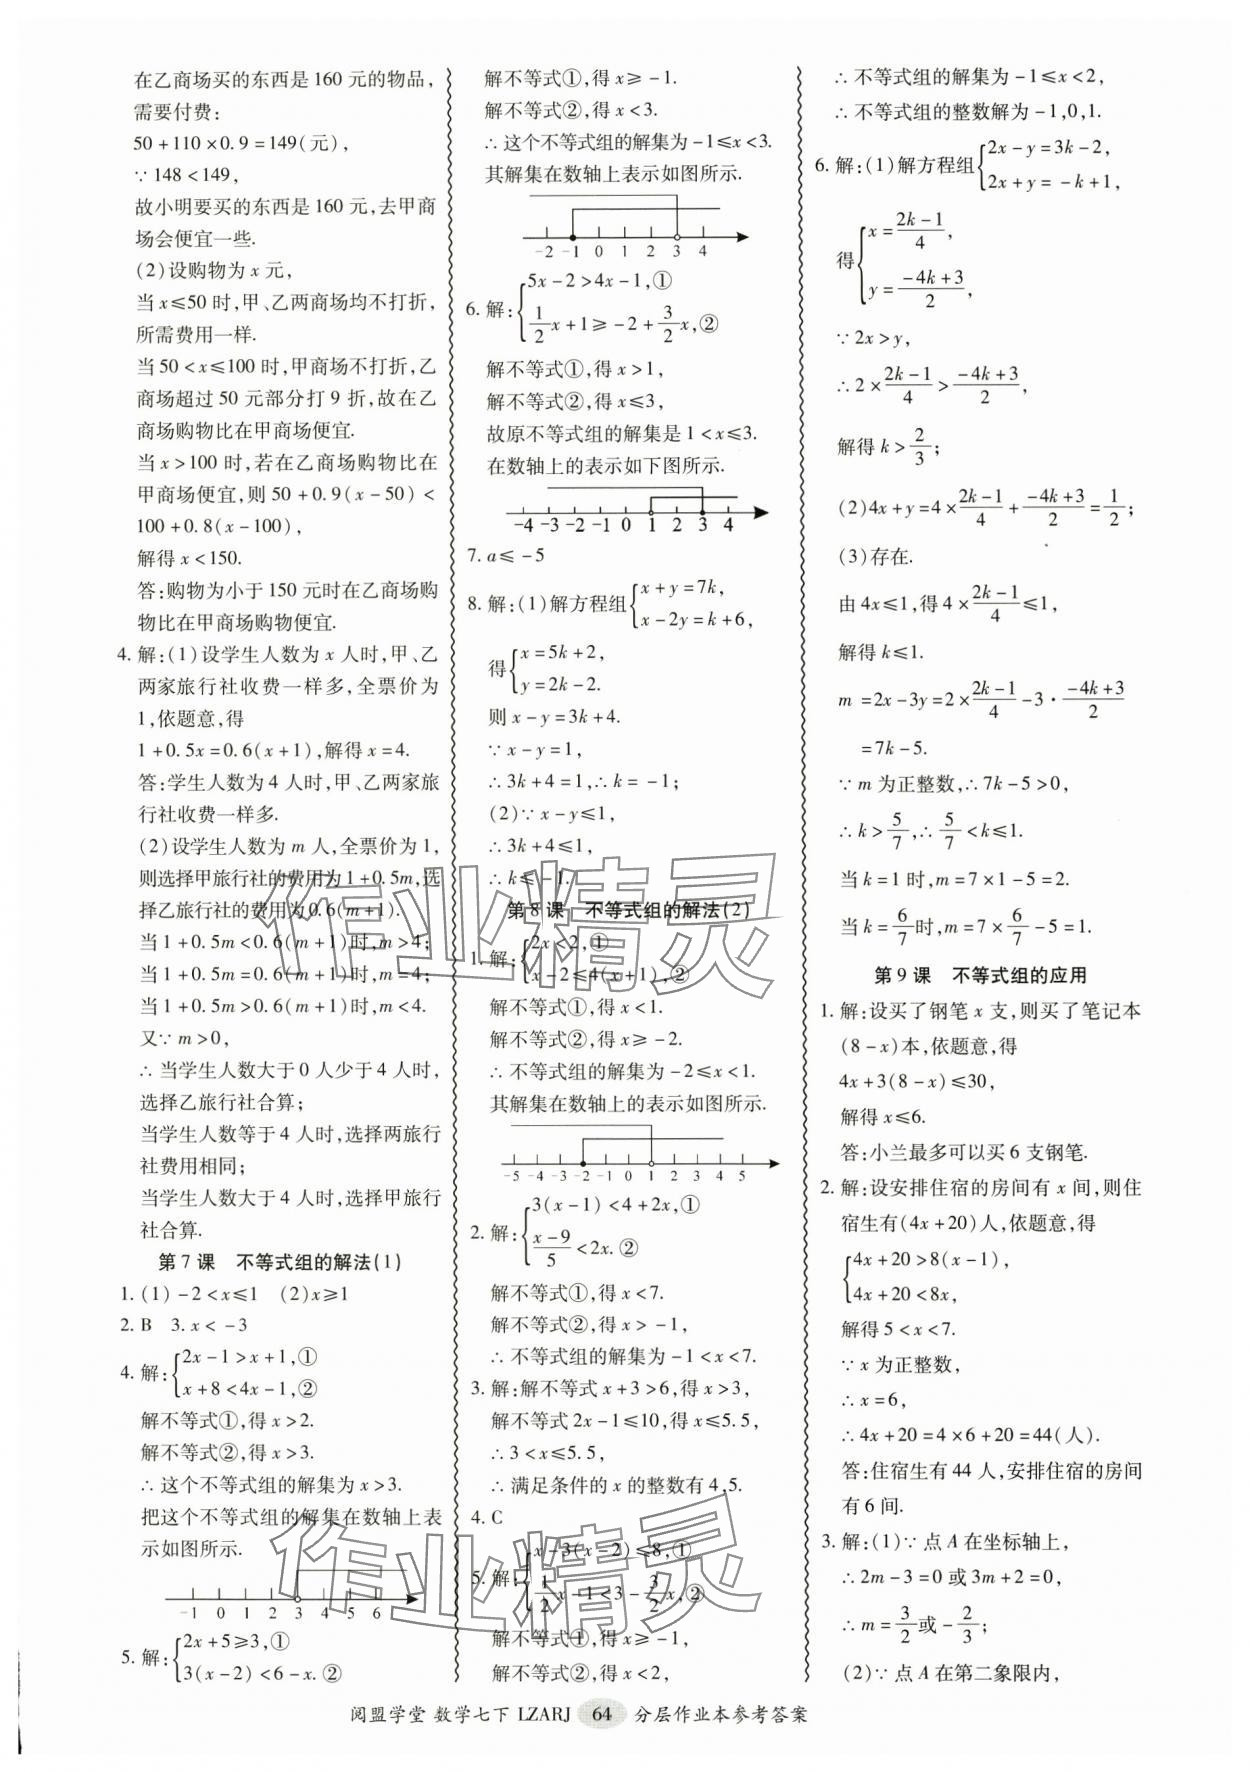 在乙商场买的东西是160元的物品,
需要付费:
50+110×0.9=149(元),
∵148<149,
故小明要买的东西是160元,去甲商
场会便宜一些.
(2)设购物为x元,
当x≤50时,甲、乙两商场均不打折,
所需费用一样.
当50<x≤100时,甲商场不打折,乙
商场超过50元部分打9折,故在乙
商场购物比在甲商场便宜.
当x>100时,若在乙商场购物比在
甲商场便宜,则50+0.9(x-50)<
100+0.8(x-100),
解得x<150.
答:购物为小于150元时在乙商场购
物比在甲商场购物便宜.
4. 解:(1)设学生人数为x人时,甲、乙
两家旅行社收费一样多,全票价为
1,依题意,得
1+0.5x=0.6(x+1),解得x=4.
答:学生人数为4人时,甲、乙两家旅
行社收费一样多.
(2)设学生人数为m人,全票价为1,
则选择甲旅行社的费用为1+0.5m,选
择乙旅行社的费用为0.6(m+1).
当1+0.5m<0.6(m+1)时,m>4;
当1+0.5m=0.6(m+1)时,m=4;
当1+0.5m>0.6(m+1)时,m<4.
又∵m>0,
∴当学生人数大于0人少于4人时,
选择乙旅行社合算;
当学生人数等于4人时,选择两旅行
社费用相同;
当学生人数大于4人时,选择甲旅行
社合算.
第7课 不等式组的解法(1)
1. (1)-2<x≤1 (2)x≥1
2. B 3. x<-3
4. 解:{2x-1>x+1,①
x+8<4x-1,②
解不等式①,得x>2.
解不等式②,得x>3.
∴这个不等式组的解集为x>3.
把这个不等式组的解集在数轴上表
示如图所示.
-1 0 1 2 3 4 5 6
5. 解:{2x+5≥3,①
3(x-2)<6-x.②
解不等式①,得x≥-1.
解不等式②,得x<3.
∴这个不等式组的解集为-1≤x<3.
其解集在数轴上表示如图所示.
-2 -1 0 1 2 3 4
6. 解:{5x-2>4x-1,①
1/2x+1≥-2+3/2x,②
解不等式①,得x>1,
解不等式②,得x≤3,
故原不等式组的解集是1<x≤3.
在数轴上的表示如下图所示.
-4 -3 -2 -1 0 1 2 3 4
7. a≤-5
8. 解:(1)解方程组{x+y=7k,
x-2y=k+6,
得{x=5k+2,
y=2k-2.
则x-y=3k+4.
∵x-y=1,
∴3k+4=1,∴k=-1;
(2)∵x-y≤1,
∴3k+4≤1,
∴k≤-1.
第8课 不等式组的解法(2)
1. 解:{2x<2,①
x-2≤4(x+1),②
解不等式①,得x<1.
解不等式②,得x≥-2.
∴不等式组的解集为-2≤x<1.
其解集在数轴上的表示如图所示.
-5 -4 -3 -2 -1 0 1 2 3 4 5
2. 解:{3(x-1)<4+2x,①
(x-9)/5<2x.②
解不等式①,得x<7.
解不等式②,得x>-1,
∴不等式组的解集为-1<x<7.
3. 解:解不等式x+3>6,得x>3,
解不等式2x-1≤10,得x≤5.5,
∴3<x≤5.5,
∴满足条件的x的整数有4,5.
4. C
5. 解:{x-3(x-2)≤8,①
1/2x-1<3-3/2x,②
解不等式①,得x≥-1,
解不等式②,得x<2,
∴不等式组的解集为-1≤x<2,
∴不等式组的整数解为-1,0,1.
6. 解:(1)解方程组{2x-y=3k-2,
2x+y=-k+1,
得{x=(2k-1)/4,
y=(-4k+3)/2,
∵2x>y,
∴2×(2k-1)/4>(-4k+3)/2,
解得k>2/3;
(2)4x+y=4×(2k-1)/4+(-4k+3)/2=1/2;
(3)存在.
由4x≤1,得4×(2k-1)/4≤1,
解得k≤1.
m=2x-3y=2×(2k-1)/4-3·(-4k+3)/2
=7k-5.
∵m为正整数,∴7k-5>0,
∴k>5/7,∴5/7<k≤1.
当k=1时,m=7×1-5=2.
当k=6/7时,m=7×6/7-5=1.
第9课 不等式组的应用
1. 解:设买了钢笔x支,则买了笔记本
(8-x)本,依题意,得
4x+3(8-x)≤30,
解得x≤6.
答:小兰最多可以买6支钢笔.
2. 解:设安排住宿的房间有x间,则住
宿生有(4x+20)人,依题意,得
{4x+20>8(x-1),
4x+20<8x,
解得5<x<7.
∵x为正整数,
∴x=6,
∴4x+20=4×6+20=44(人).
答:住宿生有44人,安排住宿的房间
有6间.
3. 解:(1)∵点A在坐标轴上,
∴2m-3=0或3m+2=0,
∴m=3/2或-2/3;
(2)∵点A在第二象限内,
阅盟学堂 数学七下 LZARJ 64 分层作业本参考答案
作业精灵
作业精灵